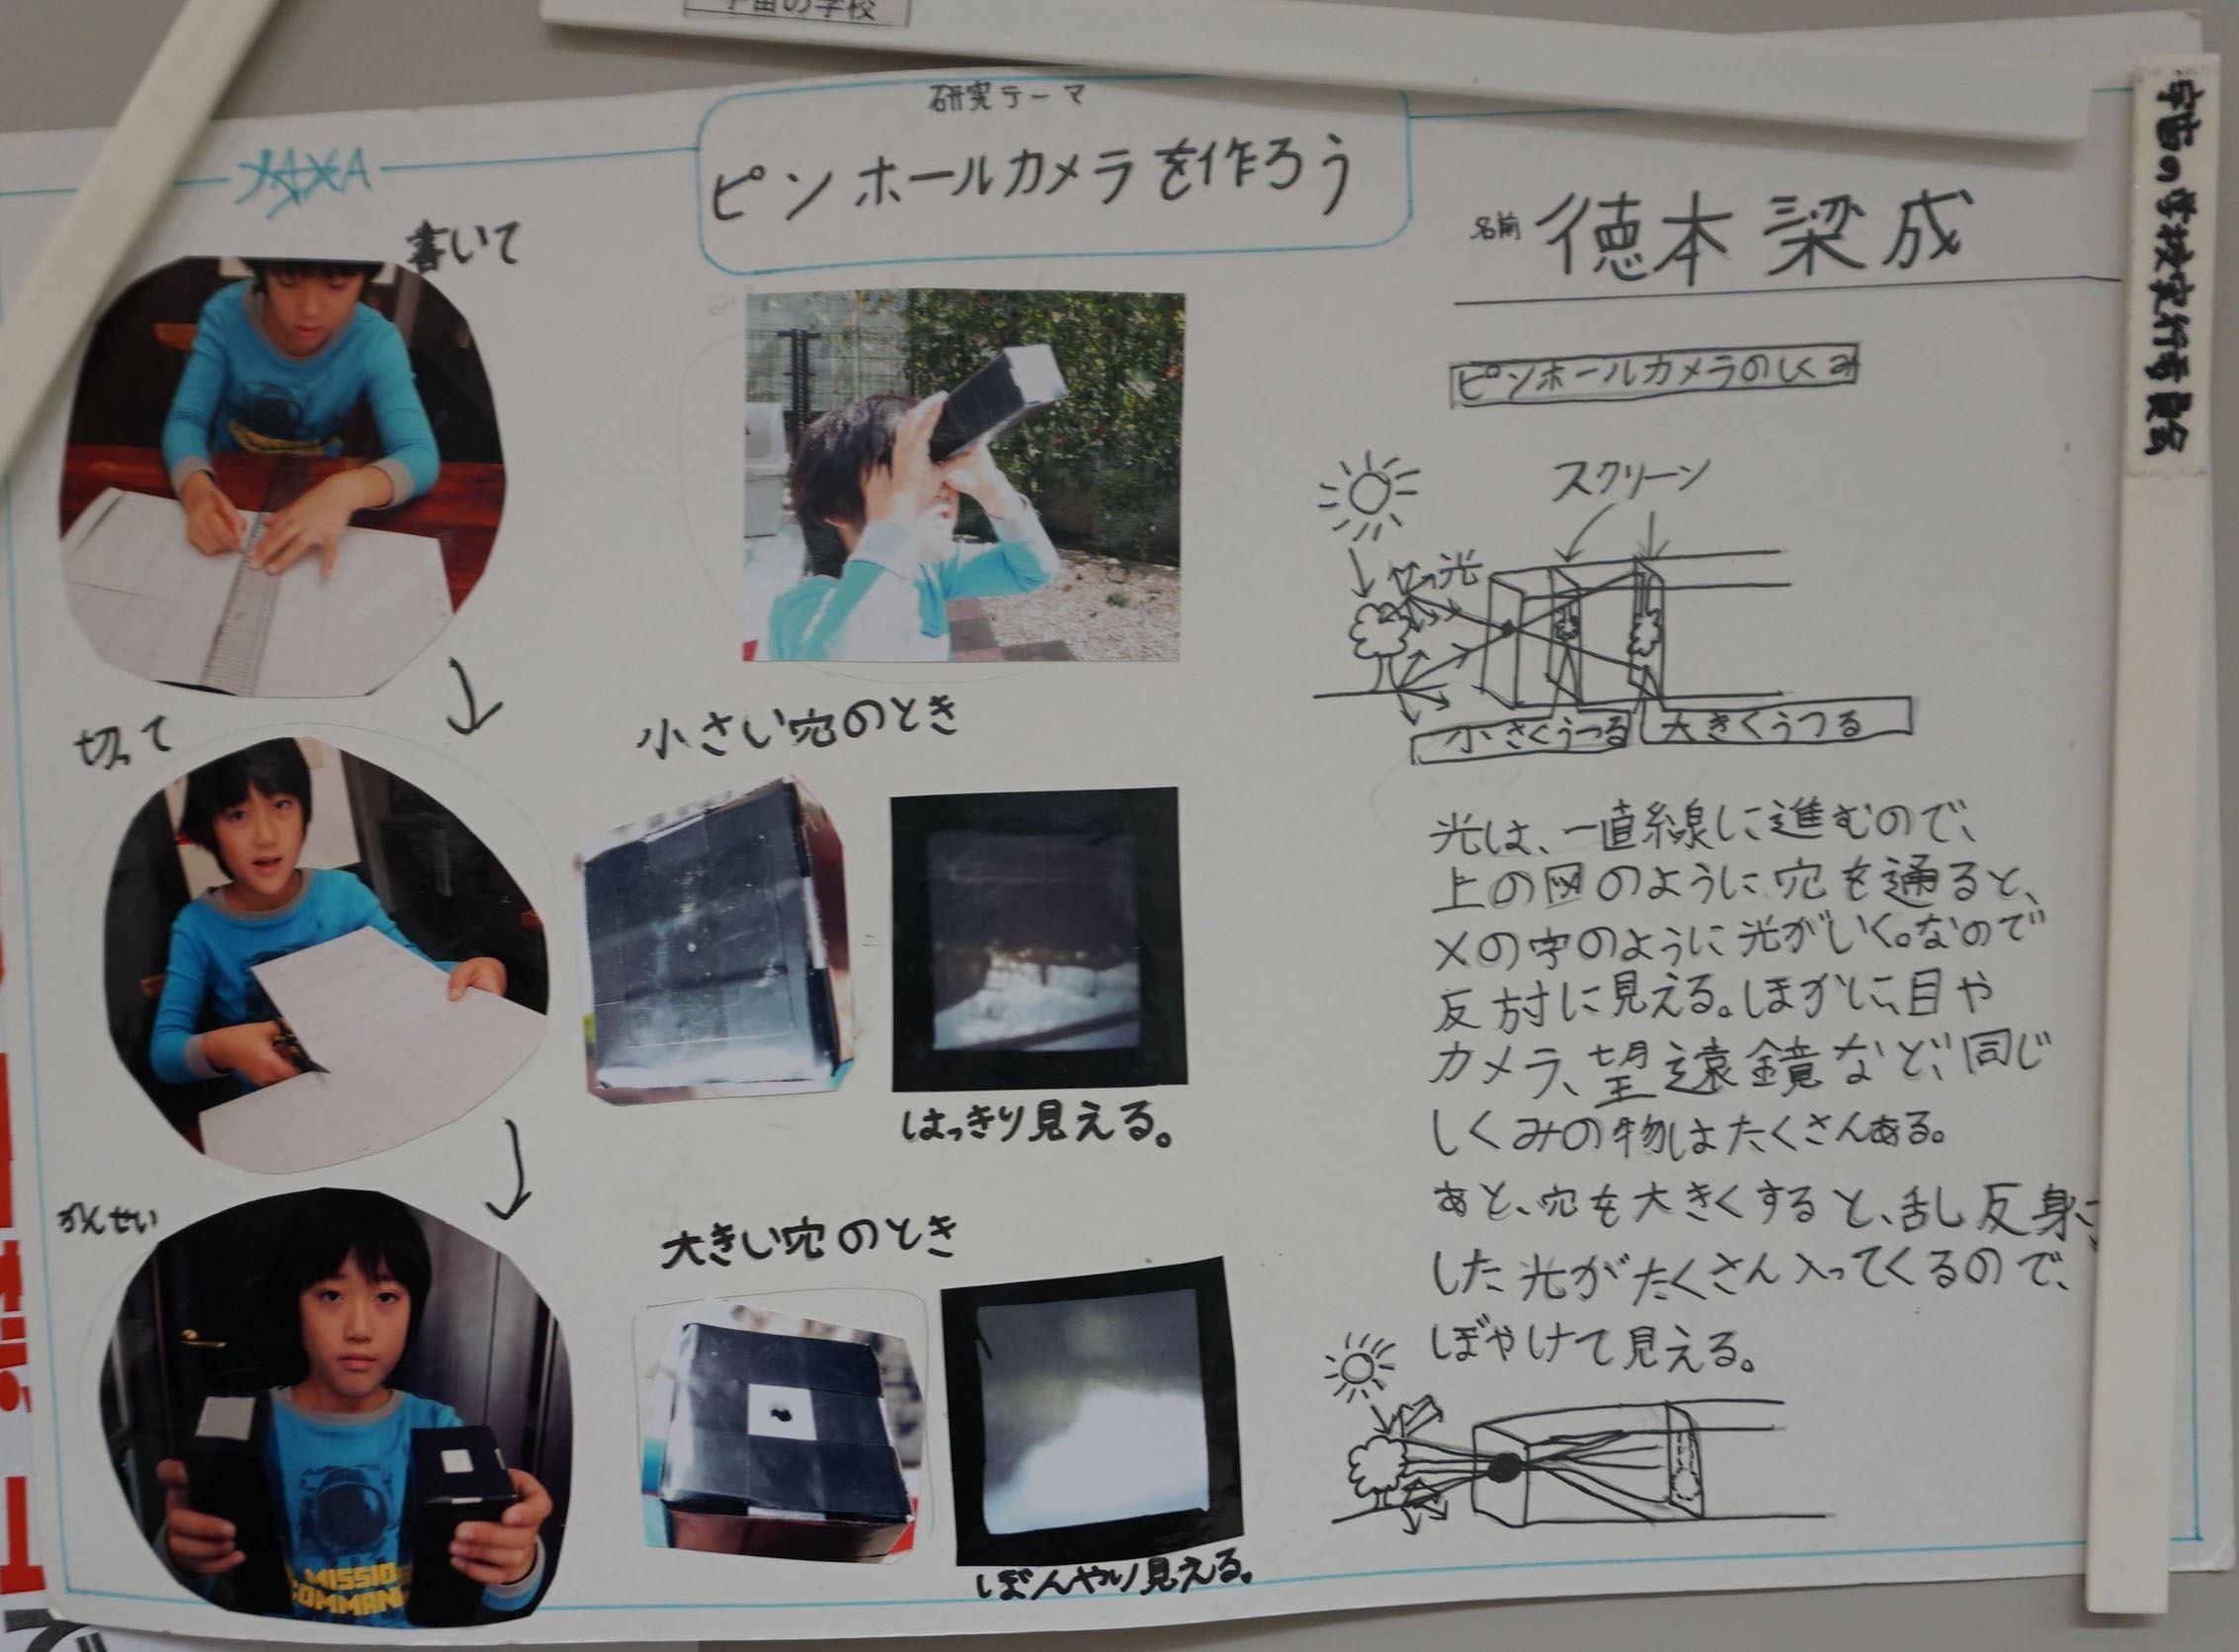 宇宙の学校
研究テーマ
ピンホールカメラを作ろう
JAXA
名前 徳本 梁成
宇宙の学校実行委員会
書いて
切って
かんせい
小さい穴のとき
はっきり見える。
大きい穴のとき
ぼんやり見える。
MISSIO
COMMAN
ピンホールカメラのしくみ
スクリーン
光
小さくうつる
大きくうつる
光は、一直線に進むので、
上の図のように穴を通ると、
メの字のように光がいく。なので
反対に見える。ほかに、目や
カメラ、望遠鏡など、同じ
しくみの物はたくさんある。
あと、穴を大きくすると、乱反射
した光がたくさん入ってくるので、
ぼやけて見える。